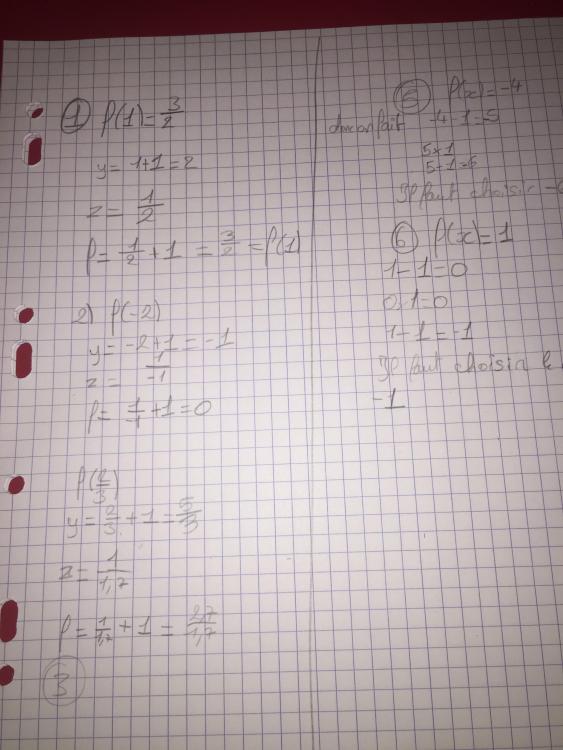 1 f(1) = 3/2
y = 1+1 = 2
z = 1/2
f = 1/2 + 1 = 3/2 = f(1)
2) f(-2)
y = -2+1 = -1
z = 1/-1
f = 1/-1 + 1 = 0
f(2/3)
y = 2/3 + 1 = 5/3
z = 1/1,7
f = 1/1,7 + 1 = 2,7/1,7
3
5 f(x) = -4
-4-1=5
5×1
5+1=6
Il faut choisir
6 f(x) = 1
1-1=0
0,1=0
1-1=-1
Il faut choisir le
-1